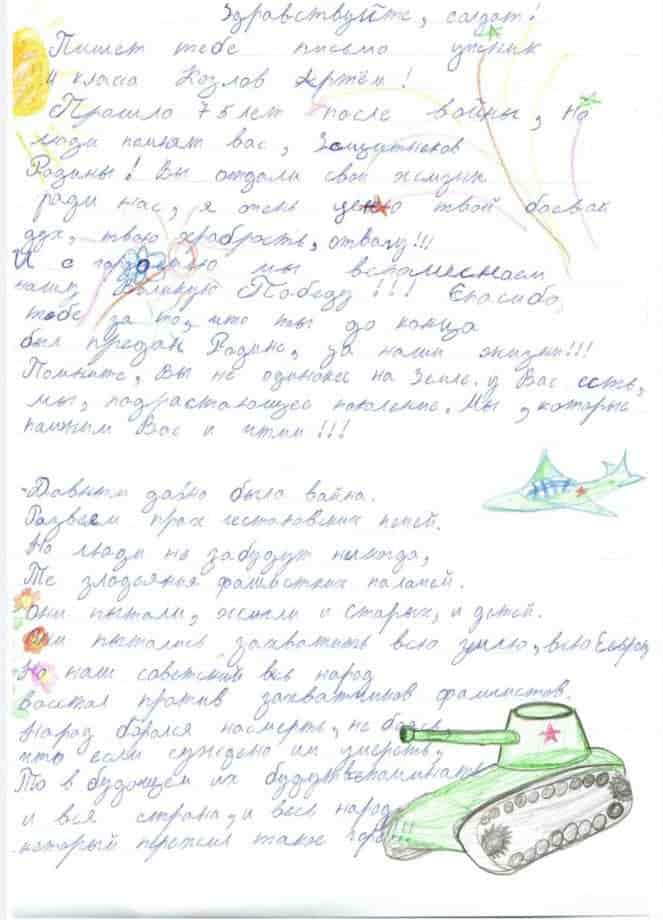 Здравствуйте, солдат!
Пишет тебе письмо ученик
4 класса Козлов Артём!
Прошло 75 лет после войны, но
люди помнят вас,
Родины! Вы отдали свои жизни
ради нас, я очень ценю твой боевой
дух, твою храбрость, отвагу!!!
И с гордостью мы
нашу Великую Победу!!! Спасибо,
тебе за то, что ты до конца
был предан Родине, за наши жизни!!!
Помните, Вы не одиноки на Земле. у Вас есть,
мы, подрастающее поколение. Мы, которые
помним Вас и чтим!!!
-Давным давно была война.
Развеем прах пепей.
Но люди не забудут никогда,
Те злодеянья палачей.
Они пытали, жгли и старых, и детей.
Они пытались захватить всю землю, всю Европу
Но наш советский весь народ
восстал против захватчиков фашистов.
Народ боролся насмерть, не боясь
что если суждено им умереть,
То в будущем их будут вспоминать
и вся страна, и весь народ
который пережил такое горе!!!